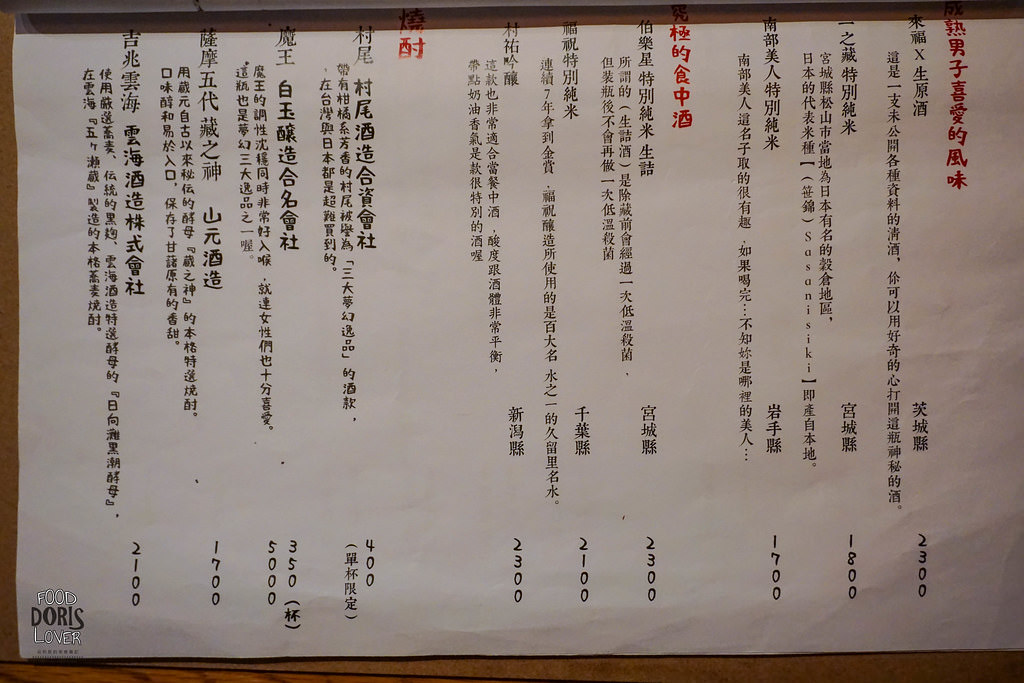 成熟男子喜愛的風味
來福X生原酒 茨城縣 2300
這是一支未公開各種資料的清酒，你可以用好奇的心打開這瓶神秘的酒。
一之藏 特別純米 宮城縣 1800
宮城縣松山市當地為日本有名的穀倉地區，
日本的代表米種【(笹錦)Sasanisiki】即產自本地。
南部美人 特別純米 岩手縣 1700
南部美人這名子取的很有趣，如果喝完…不知妳是哪裡的美人…
究極的食中酒
伯樂星 特別純米 生詰 宮城縣 2300
所謂的(生詰酒)是除藏前會經過一次低溫殺菌，
但裝瓶後不會再做一次低溫殺菌
福祝特別純米 千葉縣 2100
連續7年拿到金賞，福祝釀造所使用的是百大名水之一的久留里名水。
村祐吟釀 新潟縣 2300
這款也非常適合當餐中酒，酸度跟酒體非常平衡，
帶點奶油香氣是款很特別的酒喔
燒酎
村尾 村尾酒造合資會社 400(單杯限定)
帶有柑橘系芳香的村尾被譽為「三大夢幻逸品」的酒款，
在台灣與日本都是超難買到的。
魔王 白玉釀造合名會社 350(杯)
5000
魔王的調性沈穩同時非常好入喉，就連女性們也十分喜愛。
這瓶也是夢幻三大逸品之一喔。
薩摩五代 藏之神 山元酒造 1700
用藏元自古以來秘伝的酵母『蔵之神』的本格特選燒酎。
口味醇和易於入口，保存了甘藷原有的香甜。
吉兆雲海 雲海酒造株式會社 2100
使用嚴選蕎麦、伝統的黑麹、雲海酒造特選酵母的『日向灘黑潮酵母』，
在雲海『五ヶ瀨蔵』製造的本格蕎麦燒酎。
FOOD
DORIS
LOVER